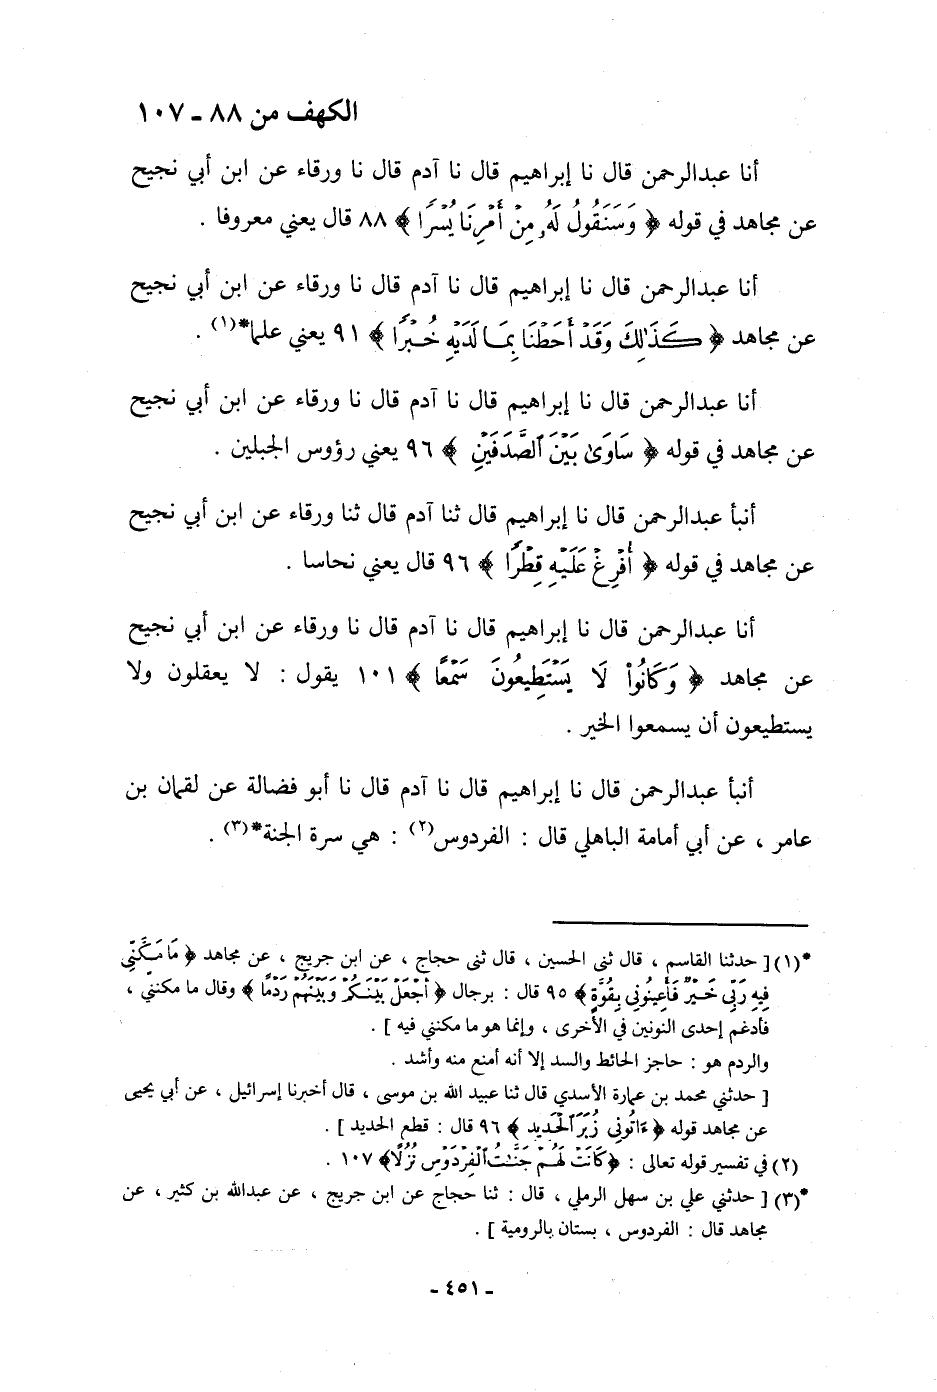 الكهف من ٨٨ ـ ١٠٧
أنا عبدالرحمن قال نا إبراهيم قال نا آدم قال نا ورقاء عن ابن أبي نجيح
عن مجاهد في قوله ﴿ وَسَنَقُولُ لَهُۥ مِنْ أَمْرِنَا يُسْرًا ﴾ ٨٨ قال يعني معروفا .
أنا عبدالرحمن قال نا إبراهيم قال نا آدم قال نا ورقاء عن ابن أبي نجيح
عن مجاهد ﴿ كَذَٰلِكَ وَقَدْ أَحَطْنَا بِمَا لَدَيْهِ خُبْرًا ﴾ ٩١ يعني علما*(١) .
أنا عبدالرحمن قال نا إبراهيم قال نا آدم قال نا ورقاء عن ابن أبي نجيح
عن مجاهد في قوله ﴿ سَاوَىٰ بَيْنَ ٱلصَّدَفَيْنِ ﴾ ٩٦ يعني رؤوس الجبلين .
أنبأ عبدالرحمن قال نا إبراهيم قال ثنا آدم قال ثنا ورقاء عن ابن أبي نجيح
عن مجاهد في قوله ﴿ أُفْرِغْ عَلَيْهِ قِطْرًا ﴾ ٩٦ قال يعني نحاسا .
أنا عبدالرحمن قال نا إبراهيم قال نا آدم قال نا ورقاء عن ابن أبي نجيح
عن مجاهد ﴿ وَكَانُوا۟ لَا يَسْتَطِيعُونَ سَمْعًا ﴾ ١٠١ يقول : لا يعقلون ولا
يستطيعون أن يسمعوا الخير .
أنبأ عبدالرحمن قال نا إبراهيم قال نا آدم قال نا أبو فضالة عن لقمان بن
عامر ، عن أبي أمامة الباهلي قال : الفردوس(٢) : هي سرة الجنة*(٣) .
*(١) [ حدثنا القاسم ، قال ثنى الحسين ، قال ثنى حجاج ، عن ابن جريج ، عن مجاهد ﴿ مَا مَكَّنِّى
فِيهِ رَبِّى خَيْرٌ فَأَعِينُونِى بِقُوَّةٍ ﴾ ٩٥ قال : برجال ﴿ أَجْعَلْ بَيْنَكُمْ وَبَيْنَهُمْ رَدْمًا ﴾ وقال ما مكنني ،
فأدغم إحدى النونين في الأخرى ، وإنما هو ما مكنني فيه ] .
والردم هو : حاجز الحائط والسد إلا أنه أمنع منه وأشد .
[ حدثني محمد بن عمارة الأسدي قال ثنا عبيد الله بن موسى ، قال أخبرنا إسرائيل ، عن أبي يحيى
عن مجاهد قوله ﴿ ءَاتُونِى زُبَرَ ٱلْحَدِيدِ ﴾ ٩٦ قال : قطع الحديد ] .
(٢) في تفسير قوله تعالى : ﴿ كَانَتْ لَهُمْ جَنَّـٰتُ ٱلْفِرْدَوْسِ نُزُلًا ﴾ ١٠٧ .
*(٣) [ حدثني علي بن سهل الرملي ، قال : ثنا حجاج عن ابن جريج ، عن عبدالله بن كثير ، عن
مجاهد قال : الفردوس ، بستان بالرومية ] .
- ٤٥١ -